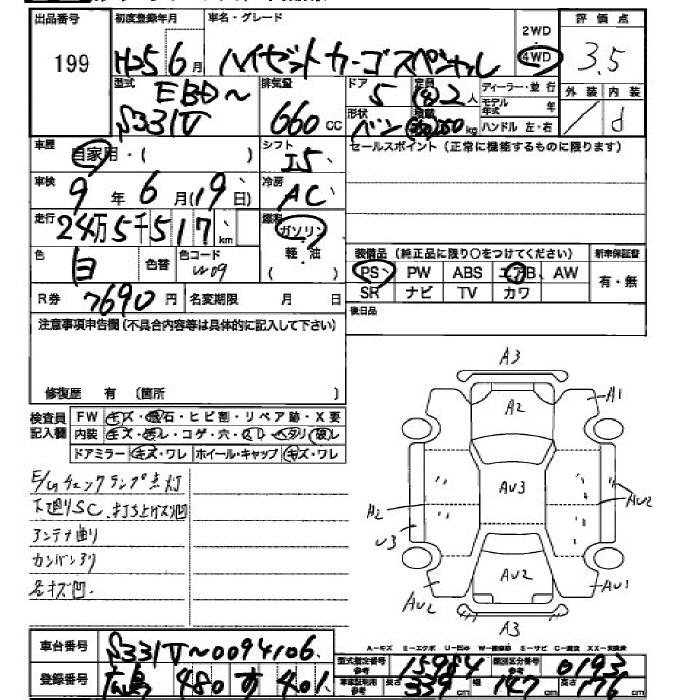 出品番号 初度登録年月 車名・グレード 2WD 評価点
199 H25 6月 ハイゼットカーゴスペシャル 4WD 3.5
型式 EBD~ 排気量 ドア 5 定員 (2)2人 ディーラー・並行 外装 内装
S331V 660cc 形状 バン 積載 kg モデル年式 年 / d
ハンドル 左・右
車歴 自家用・( ) シフト I5 セールスポイント(正常に機能するものに限ります)
車検 9年6月(19日) 冷房 AC
走行 24万5千517km 燃料 ガソリン
色 白 色替 色コード W09 軽・油 ( ) 装備品(純正品に限り○をつけてください) 新車保証書
PS PW ABS エアB AW 有・無
R券 7690円 名変期限 月 日 SR ナビ TV カワ
注意事項申告欄(不具合内容等は具体的に記入して下さい) 後日品
修復歴 有 (箇所 )
検査員記入欄 FW キズ・飛石・ヒビ割・リペア跡・X要
内装 キズ・汚レ・コゲ・穴・スレ・ヘタリ・破レ
ドアミラー キズ・ワレ ホイール・キャップ キズ・ワレ
E/Gチェックランプ点灯
下廻りSC、打ち上げスリ凹
アンテナ曲り
カンバン刈
各キズ凹
A3
A1
A2
AU3
A2
U3
AU2
AU2
AU2
AU1
A3
A-キズ E-エクボ U-凹み W-補修跡 S-サビ C-腐食 XX-交換済
車台番号 S331V~0094106 型式指定番号 参考 15984 類別区分番号 参考 0193
登録番号 広島 480 す 401 車体証明用 参考 長さ 339cm 幅 147cm 高さ 176cm